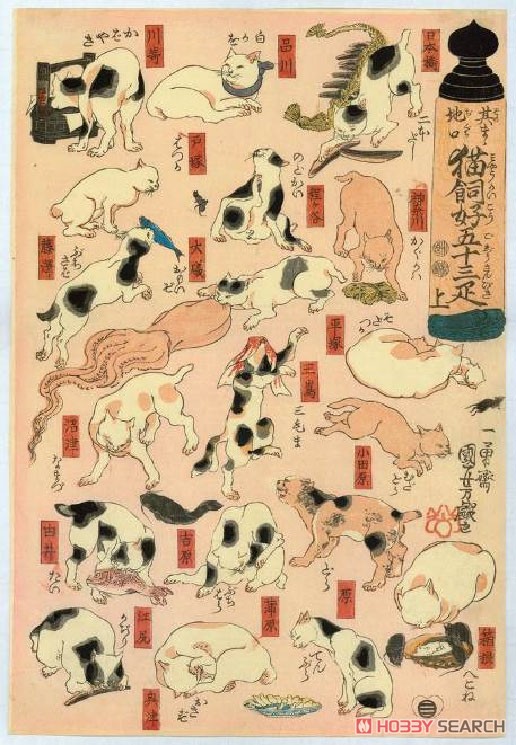 其まゝ
地口
猫飼好五十三疋
上
日本橋
二本だし
品川
白かを
川崎
かばやき
神奈川
かぐかハ
程ヶ谷
のどかい
戸塚
はつか
藤澤
ぶちさバ
平塚
そだつか
大磯
おもいぞ
小田原
むだどら
三嶌
三毛ま
箱根
へこね
沼津
なまづ
原
どら
吉原
ぶちはら
由井
たい
蒲原
てんぷら
江尻
かぢり
興津
おきず
一勇齋
國芳
HOBBY SEARCH